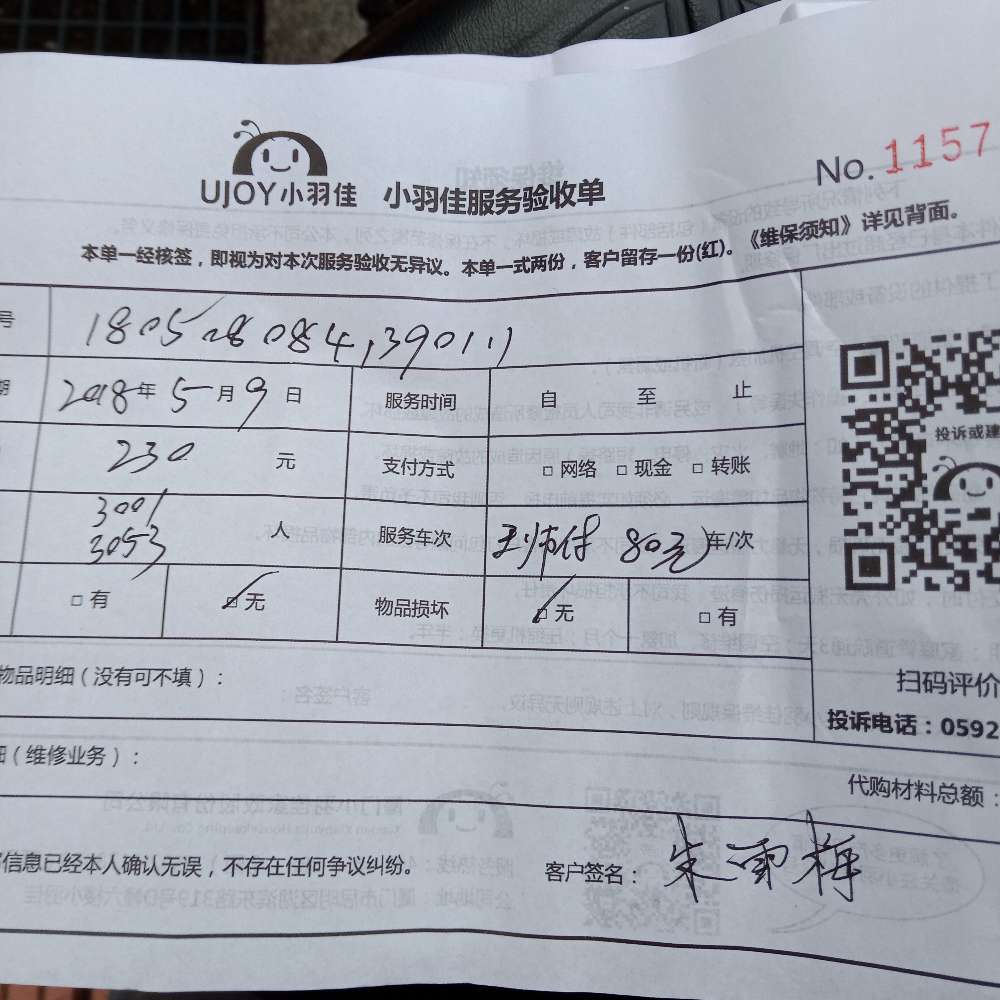 UJOY小羽佳 小羽佳服务验收单
No. 1157
本单一经核签，即视为对本次服务验收无异议。本单一式两份，客户留存一份(红)。《维保须知》详见背面。
号
期 2018年5月9日 服务时间 自 至 止
230 元 支付方式 □ 网络 □ 现金 □ 转账
3001
3053 人 服务车次 80元 车/次
□ 有 ☑ 无 物品损坏 ☑ 无 □ 有
投诉或建
扫码评价
投诉电话：0592
物品明细（没有可不填）：
细（维修业务）：
代购材料总额：
信息已经本人确认无误，不存在任何争议纠纷。
客户签名：朱雪梅